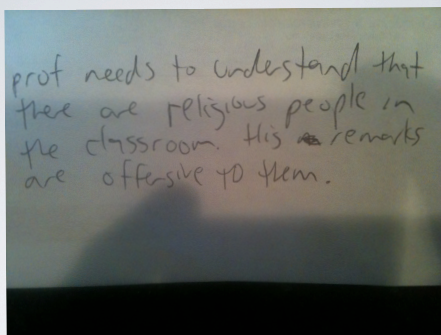 prof needs to understand that
there are religious people in
the classroom. His remarks
are offensive to them.